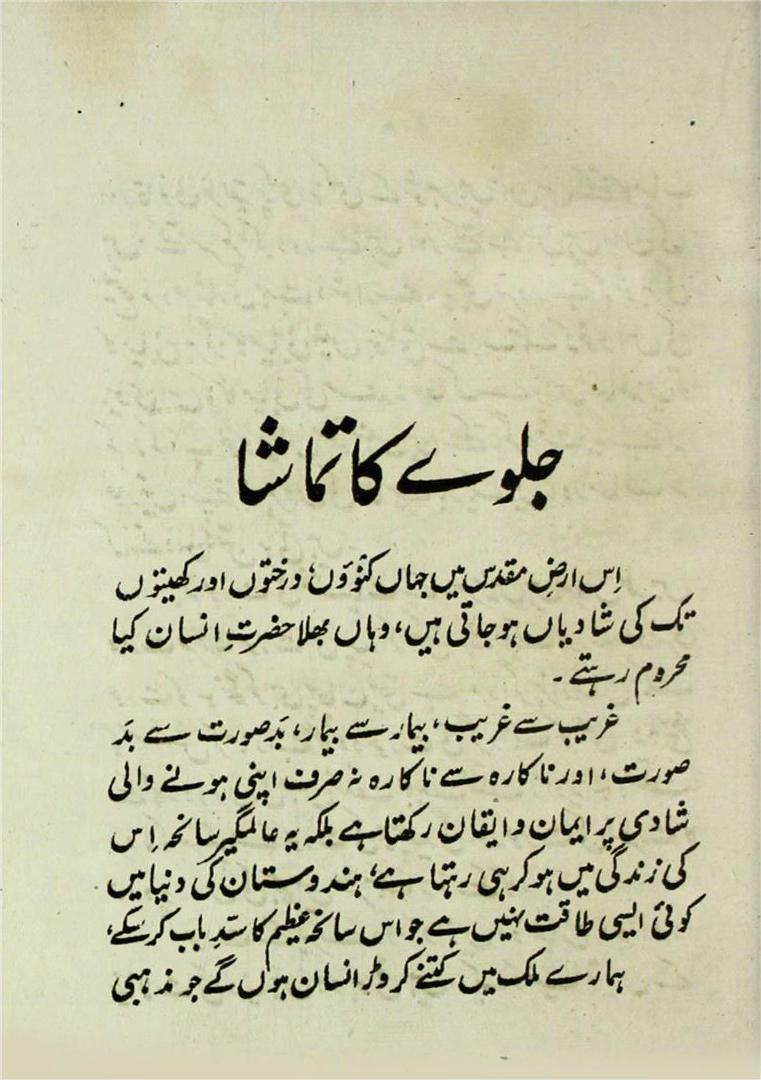 جلوے کا تماشا
اِس ارضِ مقدس میں جہاں کنوؤں، درختوں اور کھیتوں
تک کی شادیاں ہو جاتی ہیں، وہاں بھلا حضرتِ انسان کیا
محروم رہتے۔
غریب سے غریب، بیمار سے بیمار، بَدصورت سے بَد
صورت، اور ناکارہ سے ناکارہ نہ صرف اپنی ہونے والی
شادی پر ایمان و ایقان رکھتا ہے بلکہ یہ عالمگیر سانحہ اِس
کی زندگی میں ہو کر ہی رہتا ہے، ہندوستان کی دنیا میں
کوئی ایسی طاقت نہیں ہے جو اس سانحۂ عظیم کا سدِّ باب کر سکے،
ہمارے ملک میں کتنے کروڑ انسان ہوں گے جو مذہبی